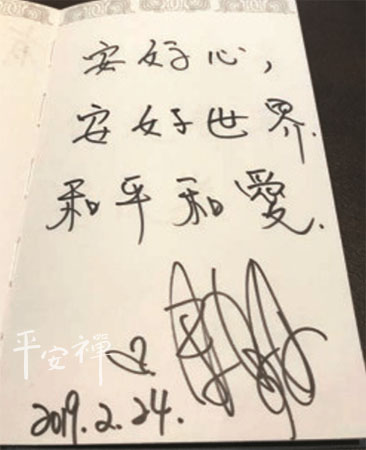 安好心,
安好世界.
和平和愛.
平安禪
2019.2.24.